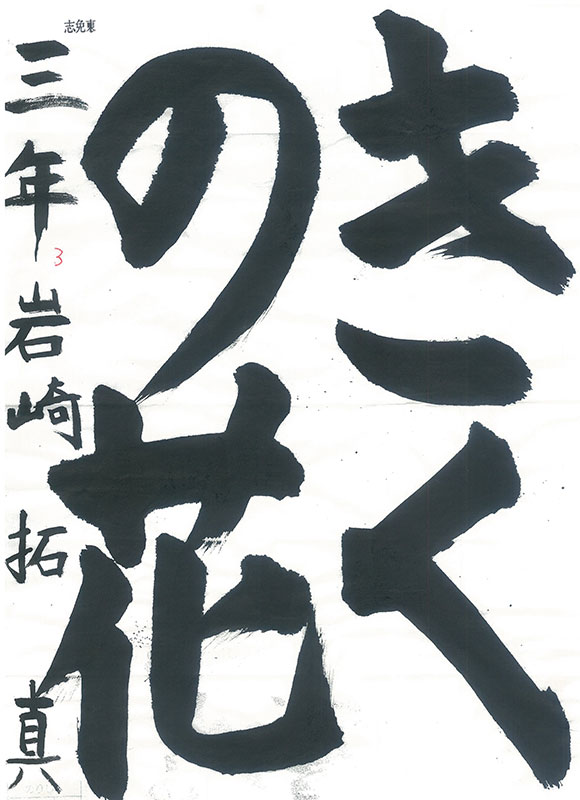 きく
の花
三年 岩崎拓真
3
東免志